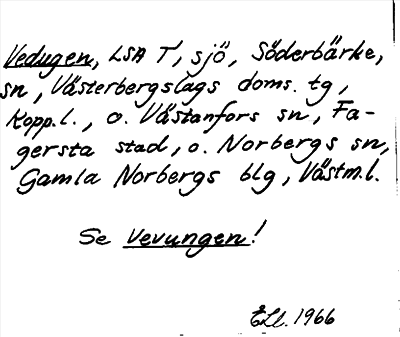 Vedugen, LSA T, sjö, Söderbärke,
sn, Västerbergslags doms. tg,
Kopp.l., o. Västanfors sn, Fa-
gersta stad, o. Norbergs sn,
Gamla Norbergs blg, Västm.l.
Se Vevungen!
ELl. 1966